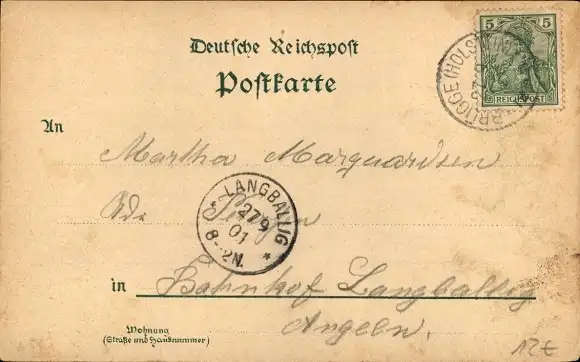 Deutsche Reichspost
Postkarte
5 5
REICHSPOST
BRÜGGE (HOLSTEIN)
An
Martha Marquardsen
LANGBALLIG
27/9
01
8-12N.
in Bahnhof Langballig
Angeln.
Wohnung
(Straße und Hausnummer)
12€